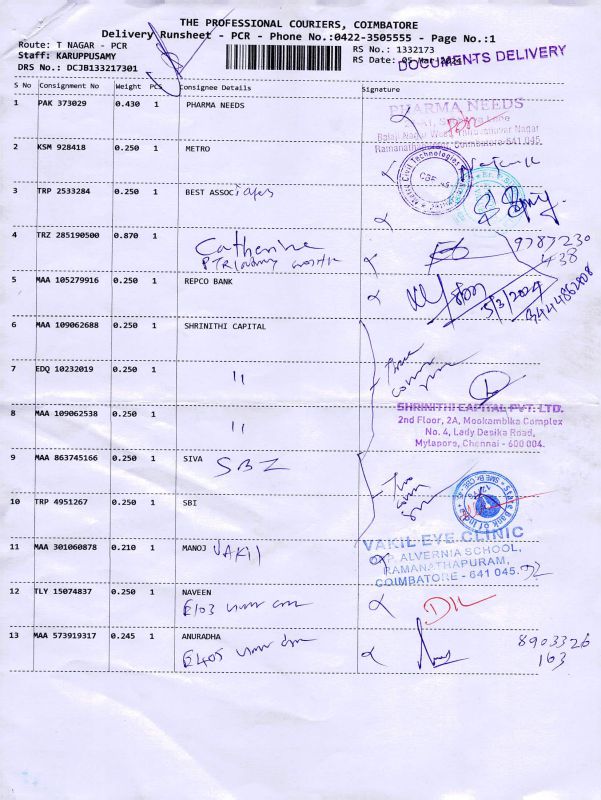 THE PROFESSIONAL COURIERS, COIMBATORE
Delivery Runsheet - PCR - Phone No.:0422-3505555 - Page No.:1
Route: T NAGAR - PCR
RS No.: 1332173
Staff: KARUPPUSAMY
RS Date: 05-Mar-
DOCUMENTS DELIVERY
DRS No.: DCJB133217301
S No Consignment No Weight PCS Consignee Details Signature
1 PAK 373029 0.430 1 PHARMA NEEDS
PHARMA NEEDS
Balaji Nagar Nagar
Ramanatha Coimbatore-641 045.
2 KSM 928418 0.250 1 METRO
Civil Technologies
CBE-45
3 TRP 2533284 0.250 1 BEST ASSOCiates
4 TRZ 285190500 0.870 1 Catherine
9787230
438
5 MAA 105279916 0.250 1 REPCO BANK
5/3/2024
9444862808
6 MAA 109062688 0.250 1 SHRINITHI CAPITAL
Three
7 EDQ 10232019 0.250 1 "
8 MAA 109062538 0.250 1 "
SHRINITHI CAPITAL PVT. LTD.
2nd Floor, 2A, Mookambika Complex
No. 4, Lady Desika Road,
Mylapore, Chennai - 600 004.
9 MAA 863745166 0.250 1 SIVA SBI
Two
State Bank of India
10 TRP 4951267 0.250 1 SBI
11 MAA 301060878 0.210 1 MANOJ VAKIL
VAKIL EYE CLINIC
ALVERNIA SCHOOL,
RAMANATHAPURAM,
COIMBATORE - 641 045.
12 TLY 15074837 0.250 1 NAVEEN
E103
13 MAA 573919317 0.245 1 ANURADHA
E405
8903326
163